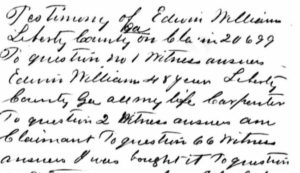 Testimony of Edwin William
Liberty County Ga on Claim 20699
To question no 1 Witness answers
Edwin William 48 year Liberty
County Ga all my life Carpenter
To question 2 Witness answers am
Claimant To question 66 Witness
answers I was bought it To question